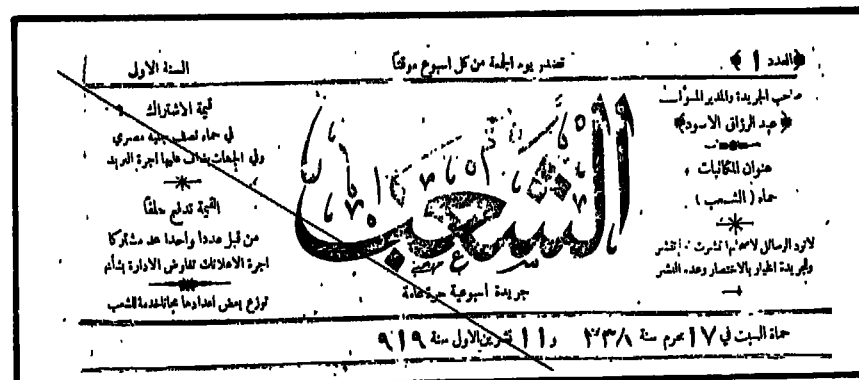 ﴿العدد ١﴾
تصدر يوم الجمعة من كل اسبوع موقتاً
السنة الاولى
صاحب الجريدة والمدير المسؤل
﴿عبد الرزاق الاسود﴾
عنوان المكاتبات
حماه (الشعب)
لاترد الرسائل لاصحابها نشرت او لم تنشر
وللجريدة الخيار بالاختصار وعدم النشر
الشعب
جريدة اسبوعية حرة عامة
قيمة الاشتراك
في حماه نصف جنيه مصري
وفي الجهات يضاف عليها اجرة البريد
القيمة تدفع سلفاً
من قبل عددا واحدا عد مشتركا
اجرة الاعلانات تفاوض الادارة بشأنها
توزع بعض اعدادها مجانا خدمة للشعب
حماة السبت في ١٧ محرم سنة ٣٣٨ و ١١ تشرين الاول سنة ٩١٩